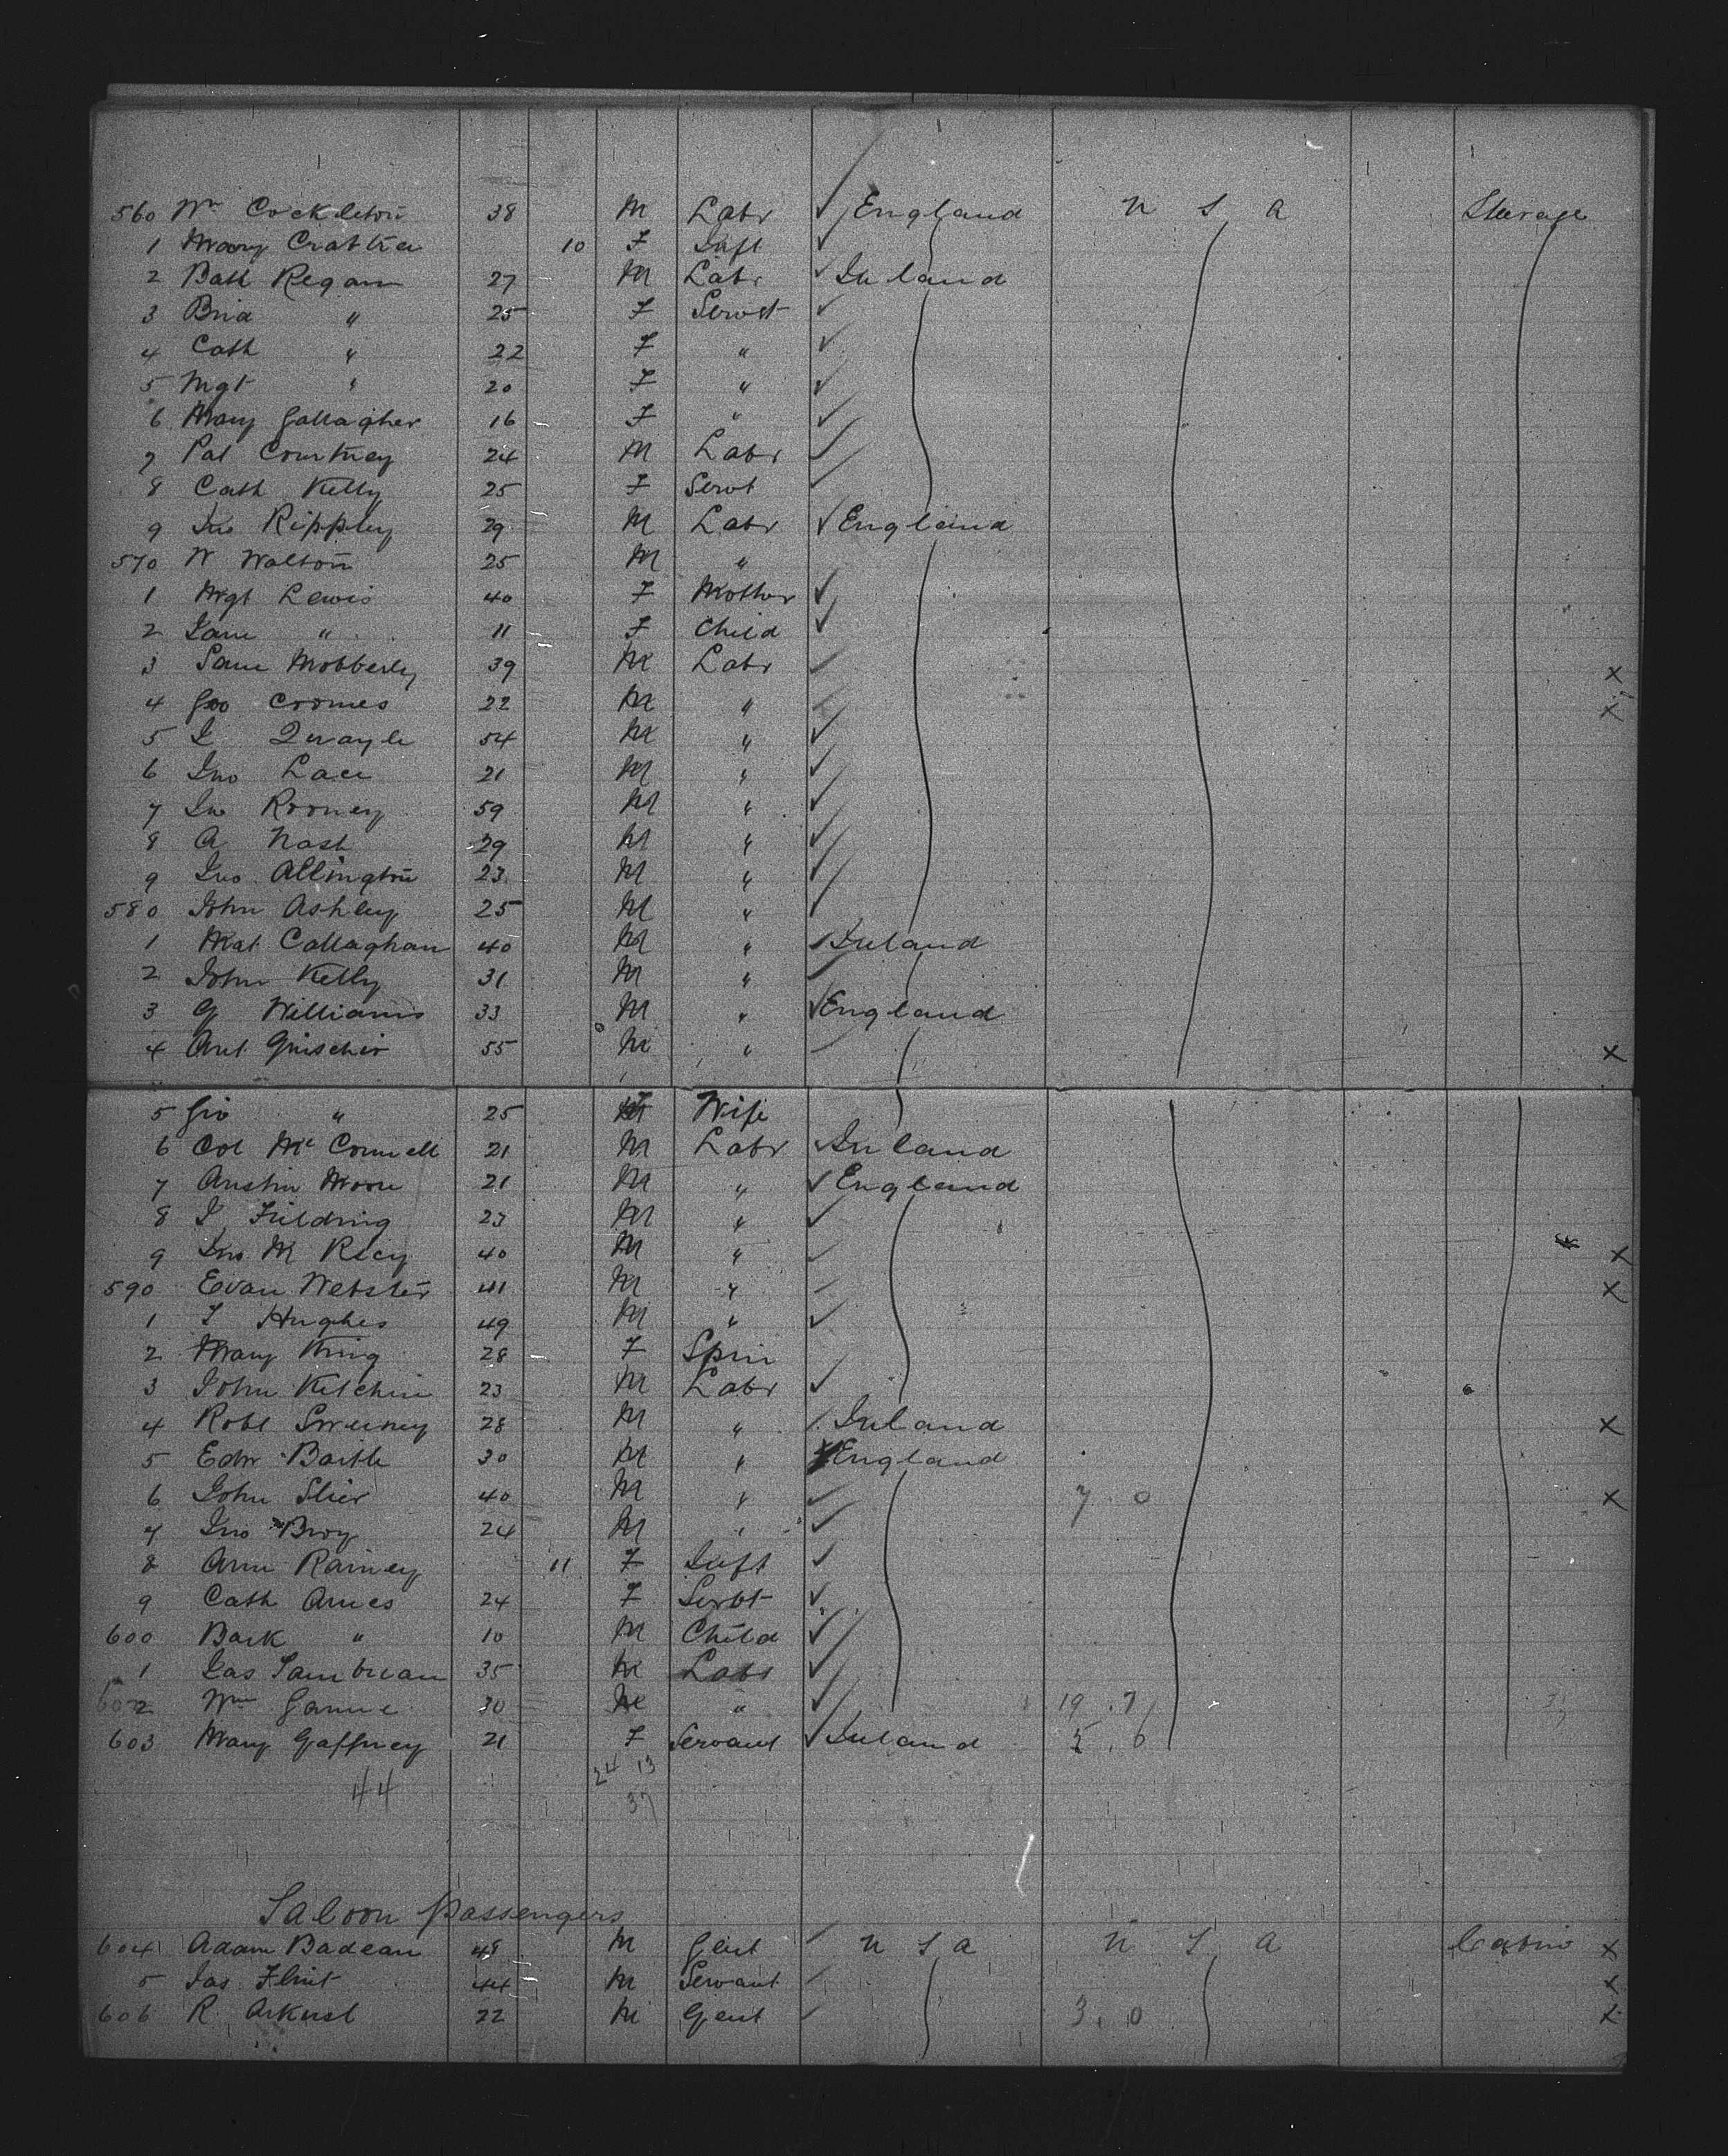 560 Wm Cockleton 38 M Labr England U S A Steerage
1 Mary Crabtree 10 F Inft
2 Batt Regan 27 M Labr Ireland
3 Brid " 25 F Servt
4 Cath " 22 F "
5 Mgt " 20 F "
6 Mary Gallagher 16 F "
7 Pat Courtney 24 M Labr
8 Cath Kelly 25 F Servt
9 Jno Rippley 29 M Labr England
570 W Walton 25 M "
1 Mgt Lewis 40 F Mother
2 Jane " 11 F Child
3 Saml Mobberly 39 M Labr X
4 Geo Cromes 22 M " X
5 J Quayle 54 M "
6 Jno Lace 21 M "
7 Jno Rooney 59 M "
8 A Nash 29 M "
9 Jno Allington 23 M "
580 John Ashley 25 M "
1 Mat Callaghan 40 M " Ireland
2 John Kelly 31 M "
3 G Williams 33 M " England
4 Ant 55 M " X
5 Gio " 25 F Wife
6 Col McConnell 21 M Labr Ireland
7 Austin Moore 21 M " England
8 J Fielding 23 M "
9 Jno M Recy 40 M " X
590 Evan Webster 41 M " X
1 T Hughes 49 M "
2 Mary King 28 F Spin
3 John Kitchin 23 M Labr
4 Robt Sweeney 28 M " Ireland X
5 Edw Bartle 30 M " England
6 John Slier 40 M " 7 . 0 X
7 Jno Broy 24 M "
8 Ann Rainey 11 F Inft
9 Cath Ames 24 F Servt
600 Bark " 10 M Child
1 Jas 35 M Labr
602 Wm Gannie 30 M " 19 . 7
603 Mary Gaffney 21 F Servant Ireland 5 . 6
24 13
44 37
Saloon passengers
604 Adam Badeau 48 M Gent U S A U S A Cabin X
5 Jas Flint 44 M Servant X
606 R Arkust 22 M Gent 3 . 0 X